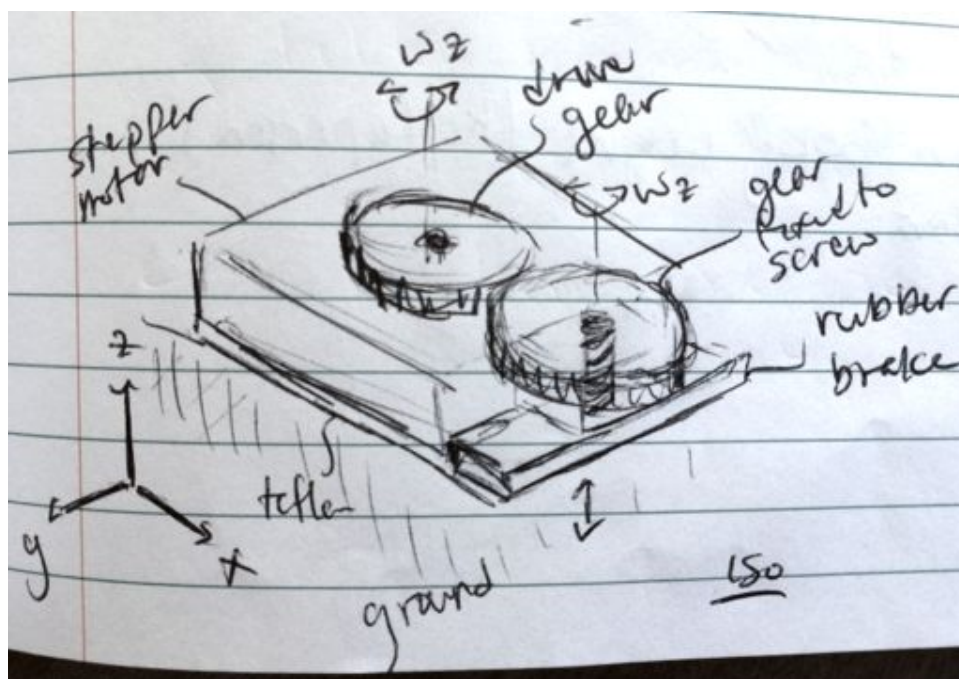 wz
drive
gear
stepper
motor
wz
gear
fixed to
screw
rubber
brake
z
teflon
y
x
ground
ISO